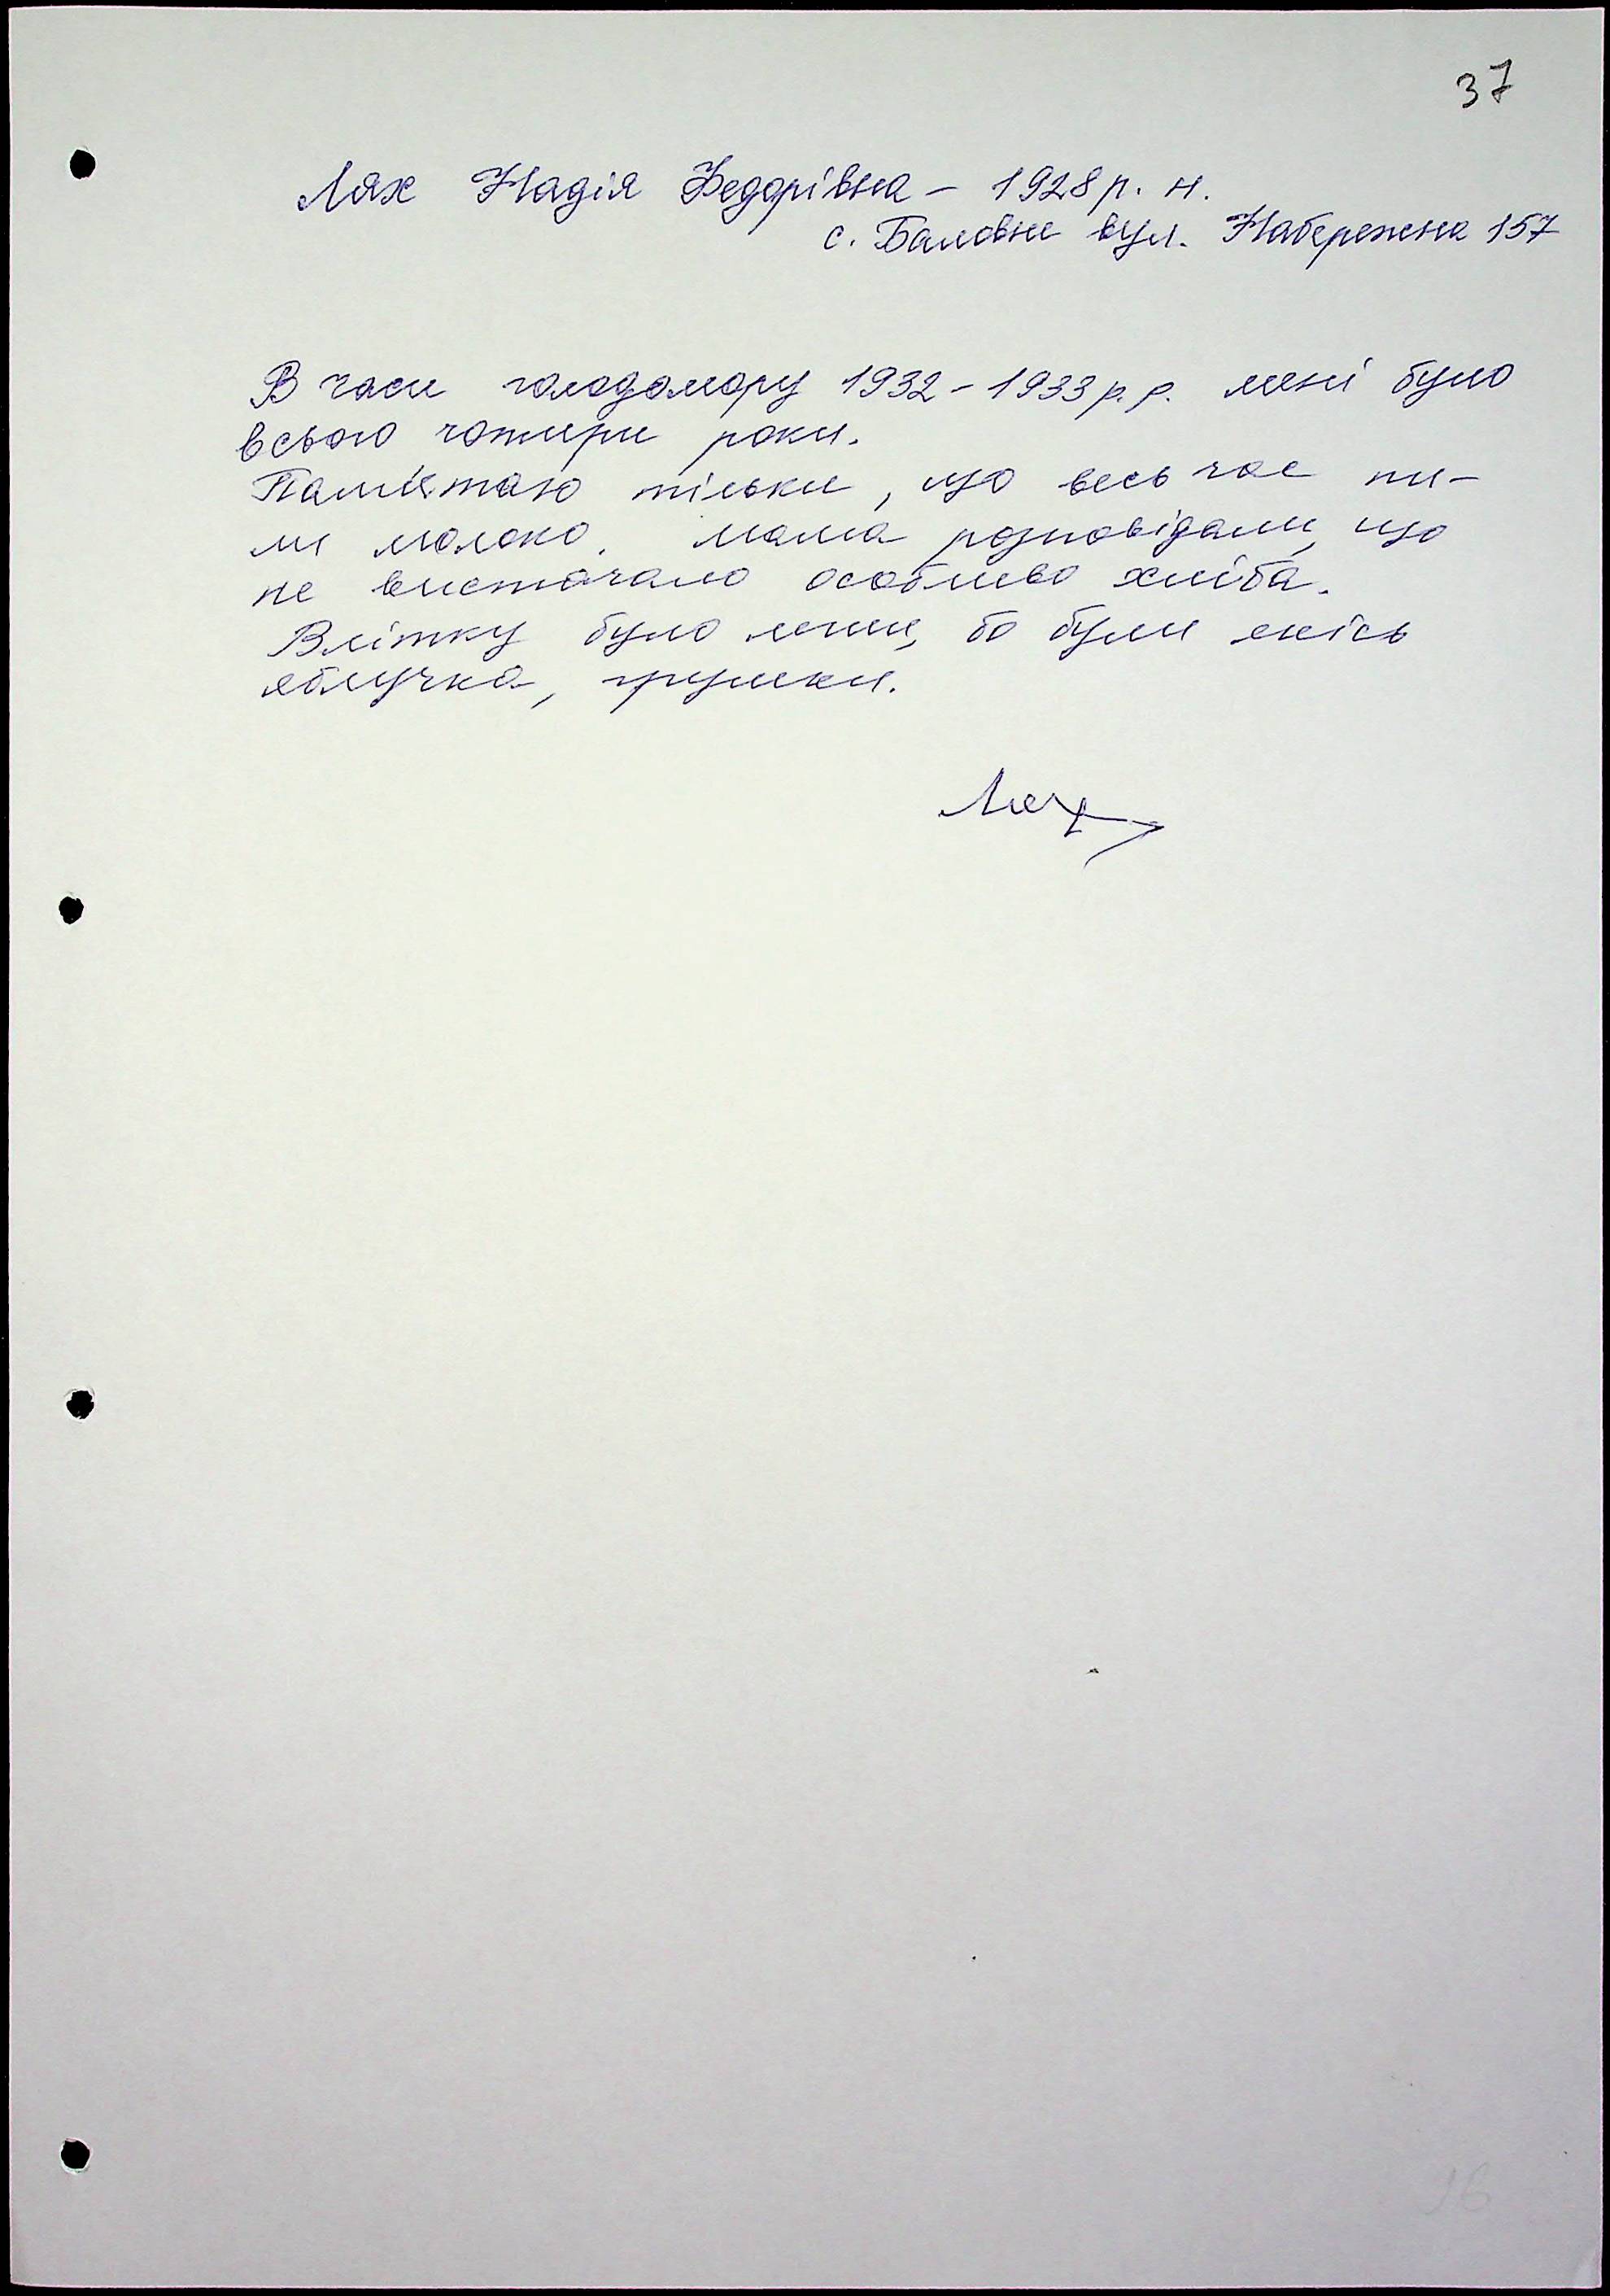 37
Лях Надія Федорівна – 1928 р. н.
с. Баловне вул. Набережна 157
В часи голодомору 1932 – 1933 р.р. мені було
всього чотири роки.
Пам'ятаю тільки, що весь час пи-
ли молоко. Мама розповідали, що
не вистачало особливо хліба.
Влітку було легше, бо були якісь
яблучка, грушки.
Лях